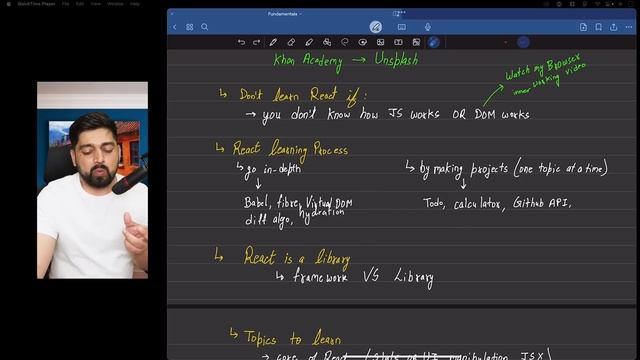 QuickTime Player File Edit View Window Help
Fundamentals
Khan Academy → Unsplash
Watch my Browser
inner working video
↳ Don't learn React if:
→ you don't know how JS works OR DOM works
↳ React learning Process
↳ go in-depth
↳ by making projects (one topic at a time)
Babel, fibre, Virtual DOM
diff algo, hydration
Todo, calculator, Github API,
↳ React is a library
↳ framework VS Library
↳ Topics to learn
→ core of React (State or UI manipulation, JSX)